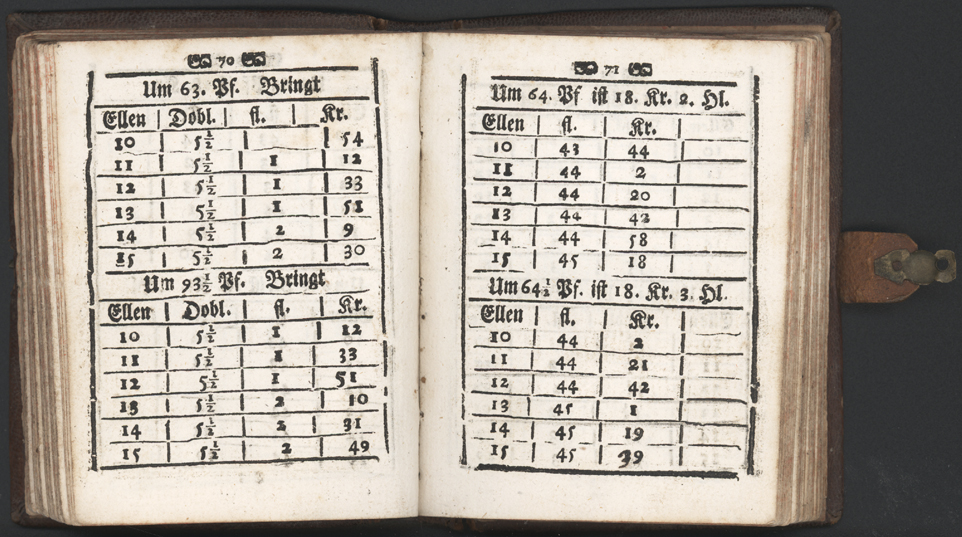 70
Um 63. Pf. Bringt
Ellen Dobl. fl. Kr.
10 5½ 54
11 5½ 1 12
12 5½ 1 33
13 5½ 1 51
14 5½ 2 9
15 5½ 2 30
Um 93½ Pf. Bringt
Ellen Dobl. fl. Kr.
10 5½ 1 12
11 5½ 1 33
12 5½ 1 51
13 5½ 2 10
14 5½ 2 31
15 5½ 2 49
71
Um 64. Pf ist 18. Kr. 2. Hl.
Ellen fl. Kr.
10 43 44
11 44 2
12 44 20
13 44 42
14 44 58
15 45 18
Um 64½ Pf. ist 18. Kr. 3. Hl.
Ellen fl. Kr.
10 44 2
11 44 21
12 44 42
13 45 1
14 45 19
15 45 39